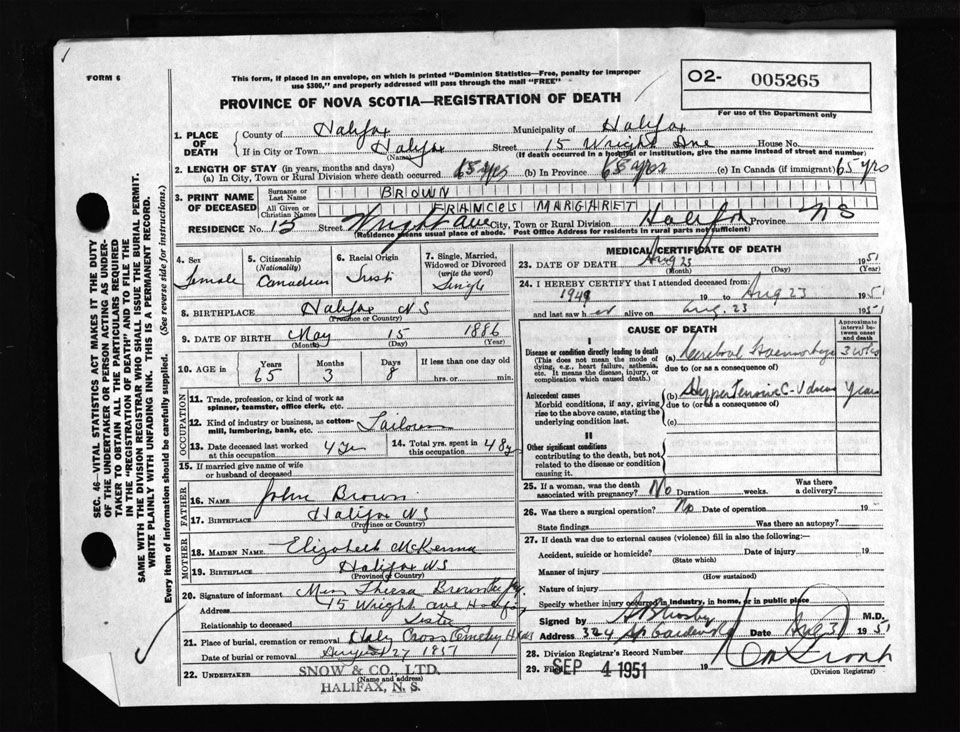 FORM 6
This form, if placed in an envelope, on which is printed "Dominion Statistics—Free, penalty for improper
use $300," and properly addressed will pass through the mail "FREE"
O2- 005265
For use of the Department only
PROVINCE OF NOVA SCOTIA—REGISTRATION OF DEATH
1. PLACE OF DEATH
County of Halifax Municipality of Halifax
If in City or Town Halifax Street 15 Wright Ave House No.
(Name) (If death occurred in a hospital or institution, give the name instead of street and number)
2. LENGTH OF STAY (in years, months and days)
(a) In City, Town or Rural Division where death occurred 65 yrs (b) In Province 65 yrs (c) In Canada (if immigrant) 65 yrs
3. PRINT NAME OF DECEASED
Surname or Last Name BROWN
All Given or Christian Names FRANCIES MARGARET
RESIDENCE No. 15 Street Wright ave City, Town or Rural Division Halifax Province NS
(Residence means usual place of abode. Post Office Address for residents in rural parts not sufficient)
4. Sex Female
5. Citizenship (Nationality) Canadian
6. Racial Origin Irish
7. Single, Married, Widowed or Divorced (write the word) Single
8. BIRTHPLACE Halifax NS
(Province or Country)
9. DATE OF BIRTH May 15 1886
(Month) (Day) (Year)
10. AGE Years 65 Months 3 Days 8 If less than one day old
hrs. or min.
OCCUPATION
11. Trade, profession, or kind of work as
spinner, teamster, office clerk, etc.
12. Kind of industry or business, as cotton-
mill, lumbering, bank, etc.
13. Date deceased last worked
at this occupation 4 yrs
14. Total yrs. spent in
this occupation 48 y
15. If married give name of wife
or husband of deceased
FATHER
16. NAME John Brown
17. BIRTHPLACE Halifax NS
(Province or Country)
MOTHER
18. MAIDEN NAME Elizabeth McKenna
19. BIRTHPLACE Halifax NS
(Province or Country)
20. Signature of informant Miss Theresa Brown
Address 15 Wright ave Halifax
Relationship to deceased Sister
21. Place of burial, cremation or removal Holy Cross Cemetery
Date of burial or removal August 27 1951
22. UNDERTAKER SNOW & CO., LTD.
(Name and address)
HALIFAX, N. S.
MEDICAL CERTIFICATE OF DEATH
23. DATE OF DEATH Aug 23 1951
(Month) (Day) (Year)
24. I HEREBY CERTIFY that I attended deceased from:
1949 19 to Aug 23 1951
and last saw her alive on Aug. 23 1951
CAUSE OF DEATH
Approximate interval between onset and death
I
Disease or condition directly leading to death
(This does not mean the mode of
dying, e.g., heart failure, asthenia,
etc. It means the disease, injury, or
complication which caused death.)
(a) Cerebral Haemorrhage 3 wks
due to (or as a consequence of)
Antecedent causes
Morbid conditions, if any, giving
rise to the above cause, stating the
underlying condition last.
(b) Hypertensive C-V disease Years
due to (or as a consequence of)
(c)
II
Other significant conditions
contributing to the death, but not
related to the disease or condition
causing it.
25. If a woman, was the death
associated with pregnancy? No Duration weeks. Was there
a delivery?
26. Was there a surgical operation? No Date of operation 19
State findings Was there an autopsy?
27. If death was due to external causes (violence) fill in also the following:—
Accident, suicide or homicide? Date of injury 19
(State which)
Manner of injury
(How sustained)
Nature of injury
Specify whether injury occurred in industry, in home, or in public place
Signed by M.D.
Address 324 Date Aug 31 1951
28. Division Registrar's Record Number
29. Filed SEP 4 1951 19
(Division Registrar)
SEC. 46—VITAL STATISTICS ACT MAKES IT THE DUTY
OF THE UNDERTAKER OR PERSON ACTING AS UNDER-
TAKER TO OBTAIN ALL THE PARTICULARS REQUIRED
IN THE "REGISTRATION OF DEATH" AND TO FILE THE
SAME WITH THE DIVISION REGISTRAR WHO SHALL ISSUE THE BURIAL PERMIT.
WRITE PLAINLY WITH UNFADING INK. THIS IS A PERMANENT RECORD.
Every item of information should be carefully supplied. (See reverse side for instructions.)